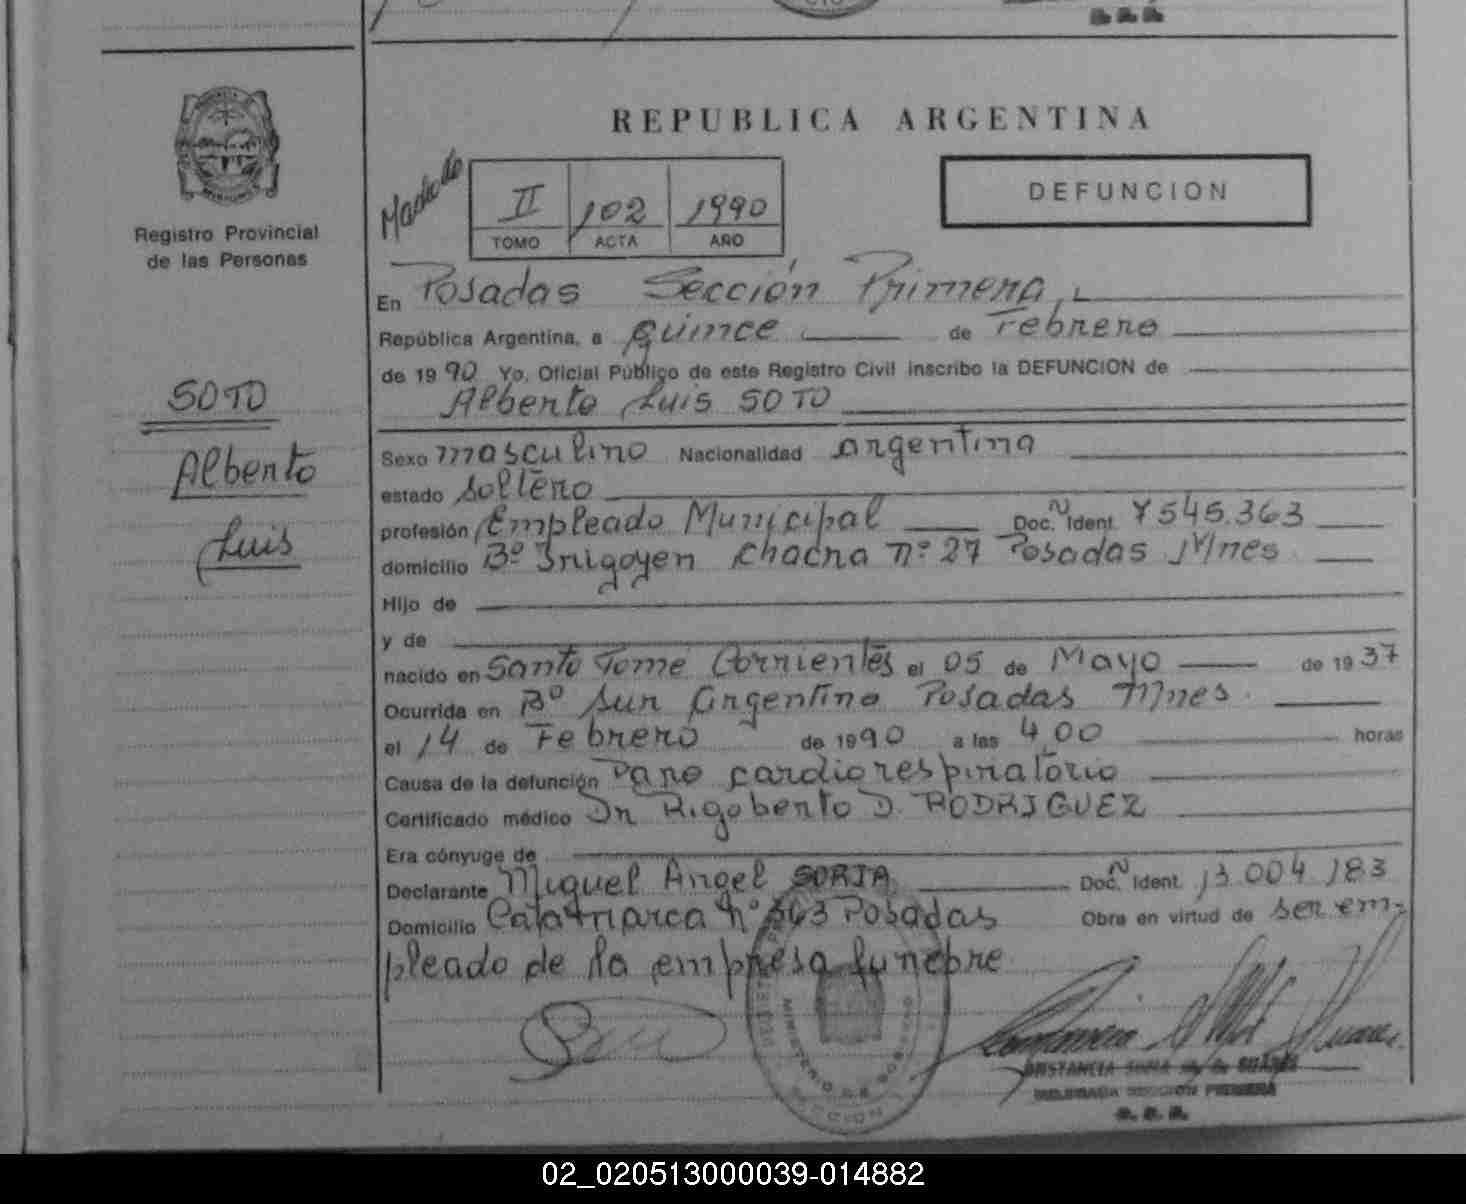 REPUBLICA ARGENTINA
Registro Provincial
de las Personas
II 102 1990
TOMO ACTA AÑO
DEFUNCION
SOTO
Alberto
Luis
En Posadas Sección Primera
República Argentina, a quince de Febrero
de 1990 Yo, Oficial Público de este Registro Civil inscribo la DEFUNCION de
Alberto Luis SOTO
Sexo masculino Nacionalidad argentina
estado soltero
profesión Empleado Municipal Doc. Ident. 7545.363
domicilio Bº Irigoyen chacra nº 27 Posadas Mnes
Hijo de
y de
nacido en Santo Tomé Corrientes el 05 de Mayo de 1937
Ocurrida en Bº Sur Argentino Posadas Mnes.
el 14 de Febrero de 1990 a las 4,00 horas
Causa de la defunción Paro cardiorespiratorio
Certificado médico Dr Rigoberto D. RODRIGUEZ
Era cónyuge de
Declarante Miguel Angel SORIA Doc. Ident. 13.004.183
Domicilio Catamarca nº 363 Posadas Obra en virtud de ser em-
pleado de la empresa funebre
MINISTERIO DE GOBIERNO
DELEGADA SECCION PRIMERA
02_020513000039-014882